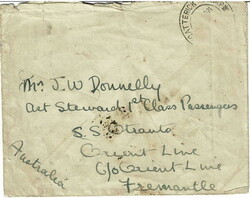 Mr J. W. Donnelly
Act Steward 1st Class Passengers
S.S. Otranto
Orient Line
C/o Orient Line
Fremantle
Australia